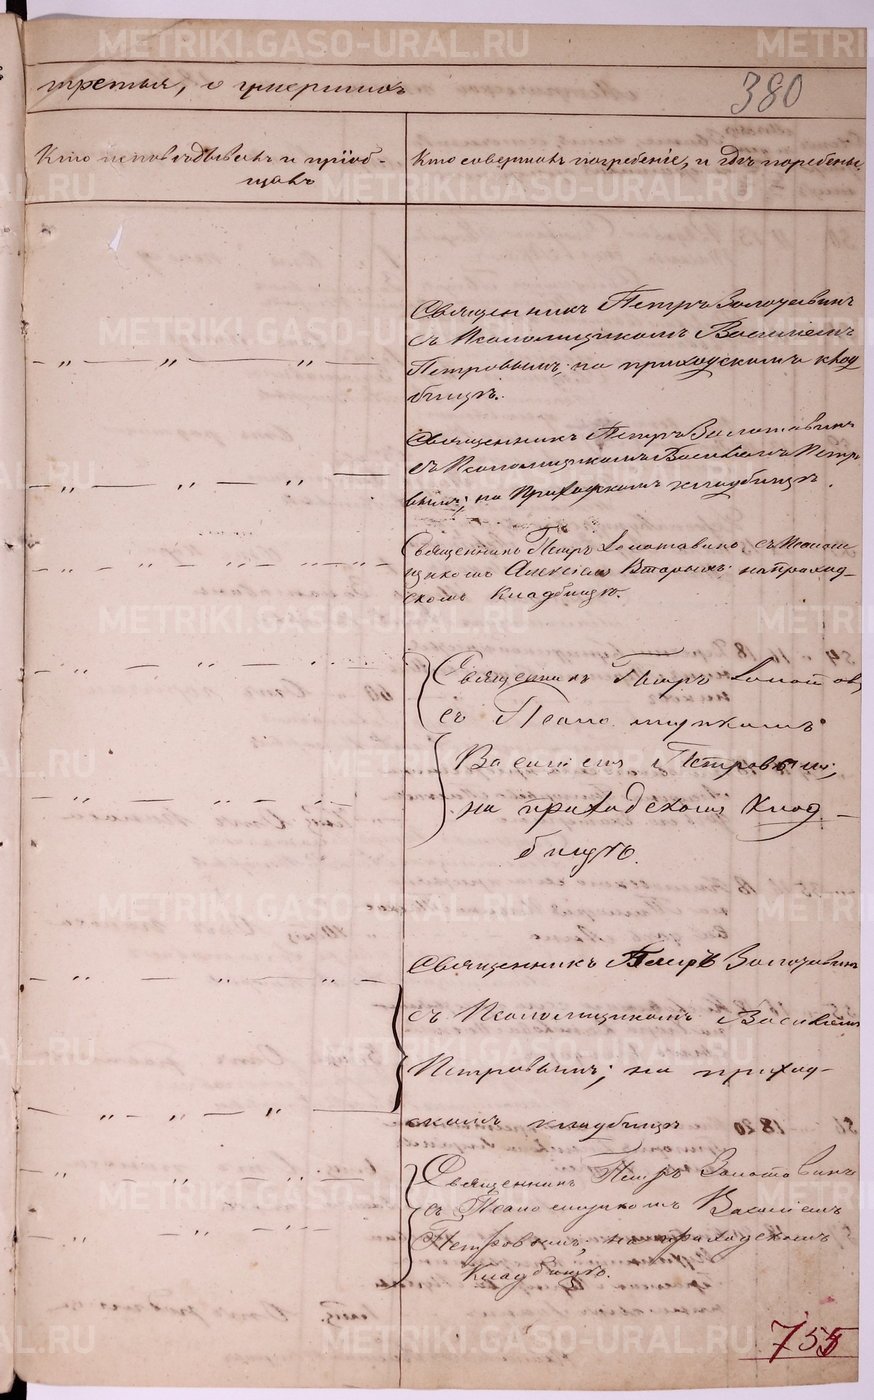 METRIKI.GASO-URAL.RU
третья, о умершихъ
380
Кто исповѣдывалъ и пріоб-
щалъ
Кто совершалъ погребеніе, и гдѣ погребены.
Священникъ Петръ Золотавинъ
съ Псаломщикомъ Василіемъ
Петровымъ; на приходскомъ клад
бищѣ.
Священникъ Петръ Золотавинъ
съ Псаломщикомъ Василіемъ Петро
вымъ; на Приходскомъ кладбищѣ.
Священникъ Петръ Золотавинъ съ Псалом
щикомъ Алексіемъ на приход-
скомъ Кладбищѣ.
Священникъ Петръ Золотов
съ Псаломщикомъ
Василіемъ Петровымъ,
на приходскомъ Клад-
бищѣ.
Священникъ Петръ Золотавинъ
съ Псаломщикомъ Василіемъ
Петровымъ; на приход-
скомъ кладбищѣ
Священникъ Петръ Золотавинъ
съ Псаломщикомъ Василіемъ
Петровымъ, на приходскомъ
Кладбищѣ.
755